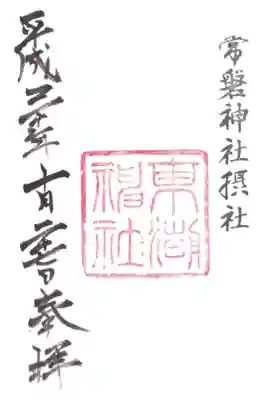 常磐神社摂社
東湖
神社
平成二十年十月日奉拝